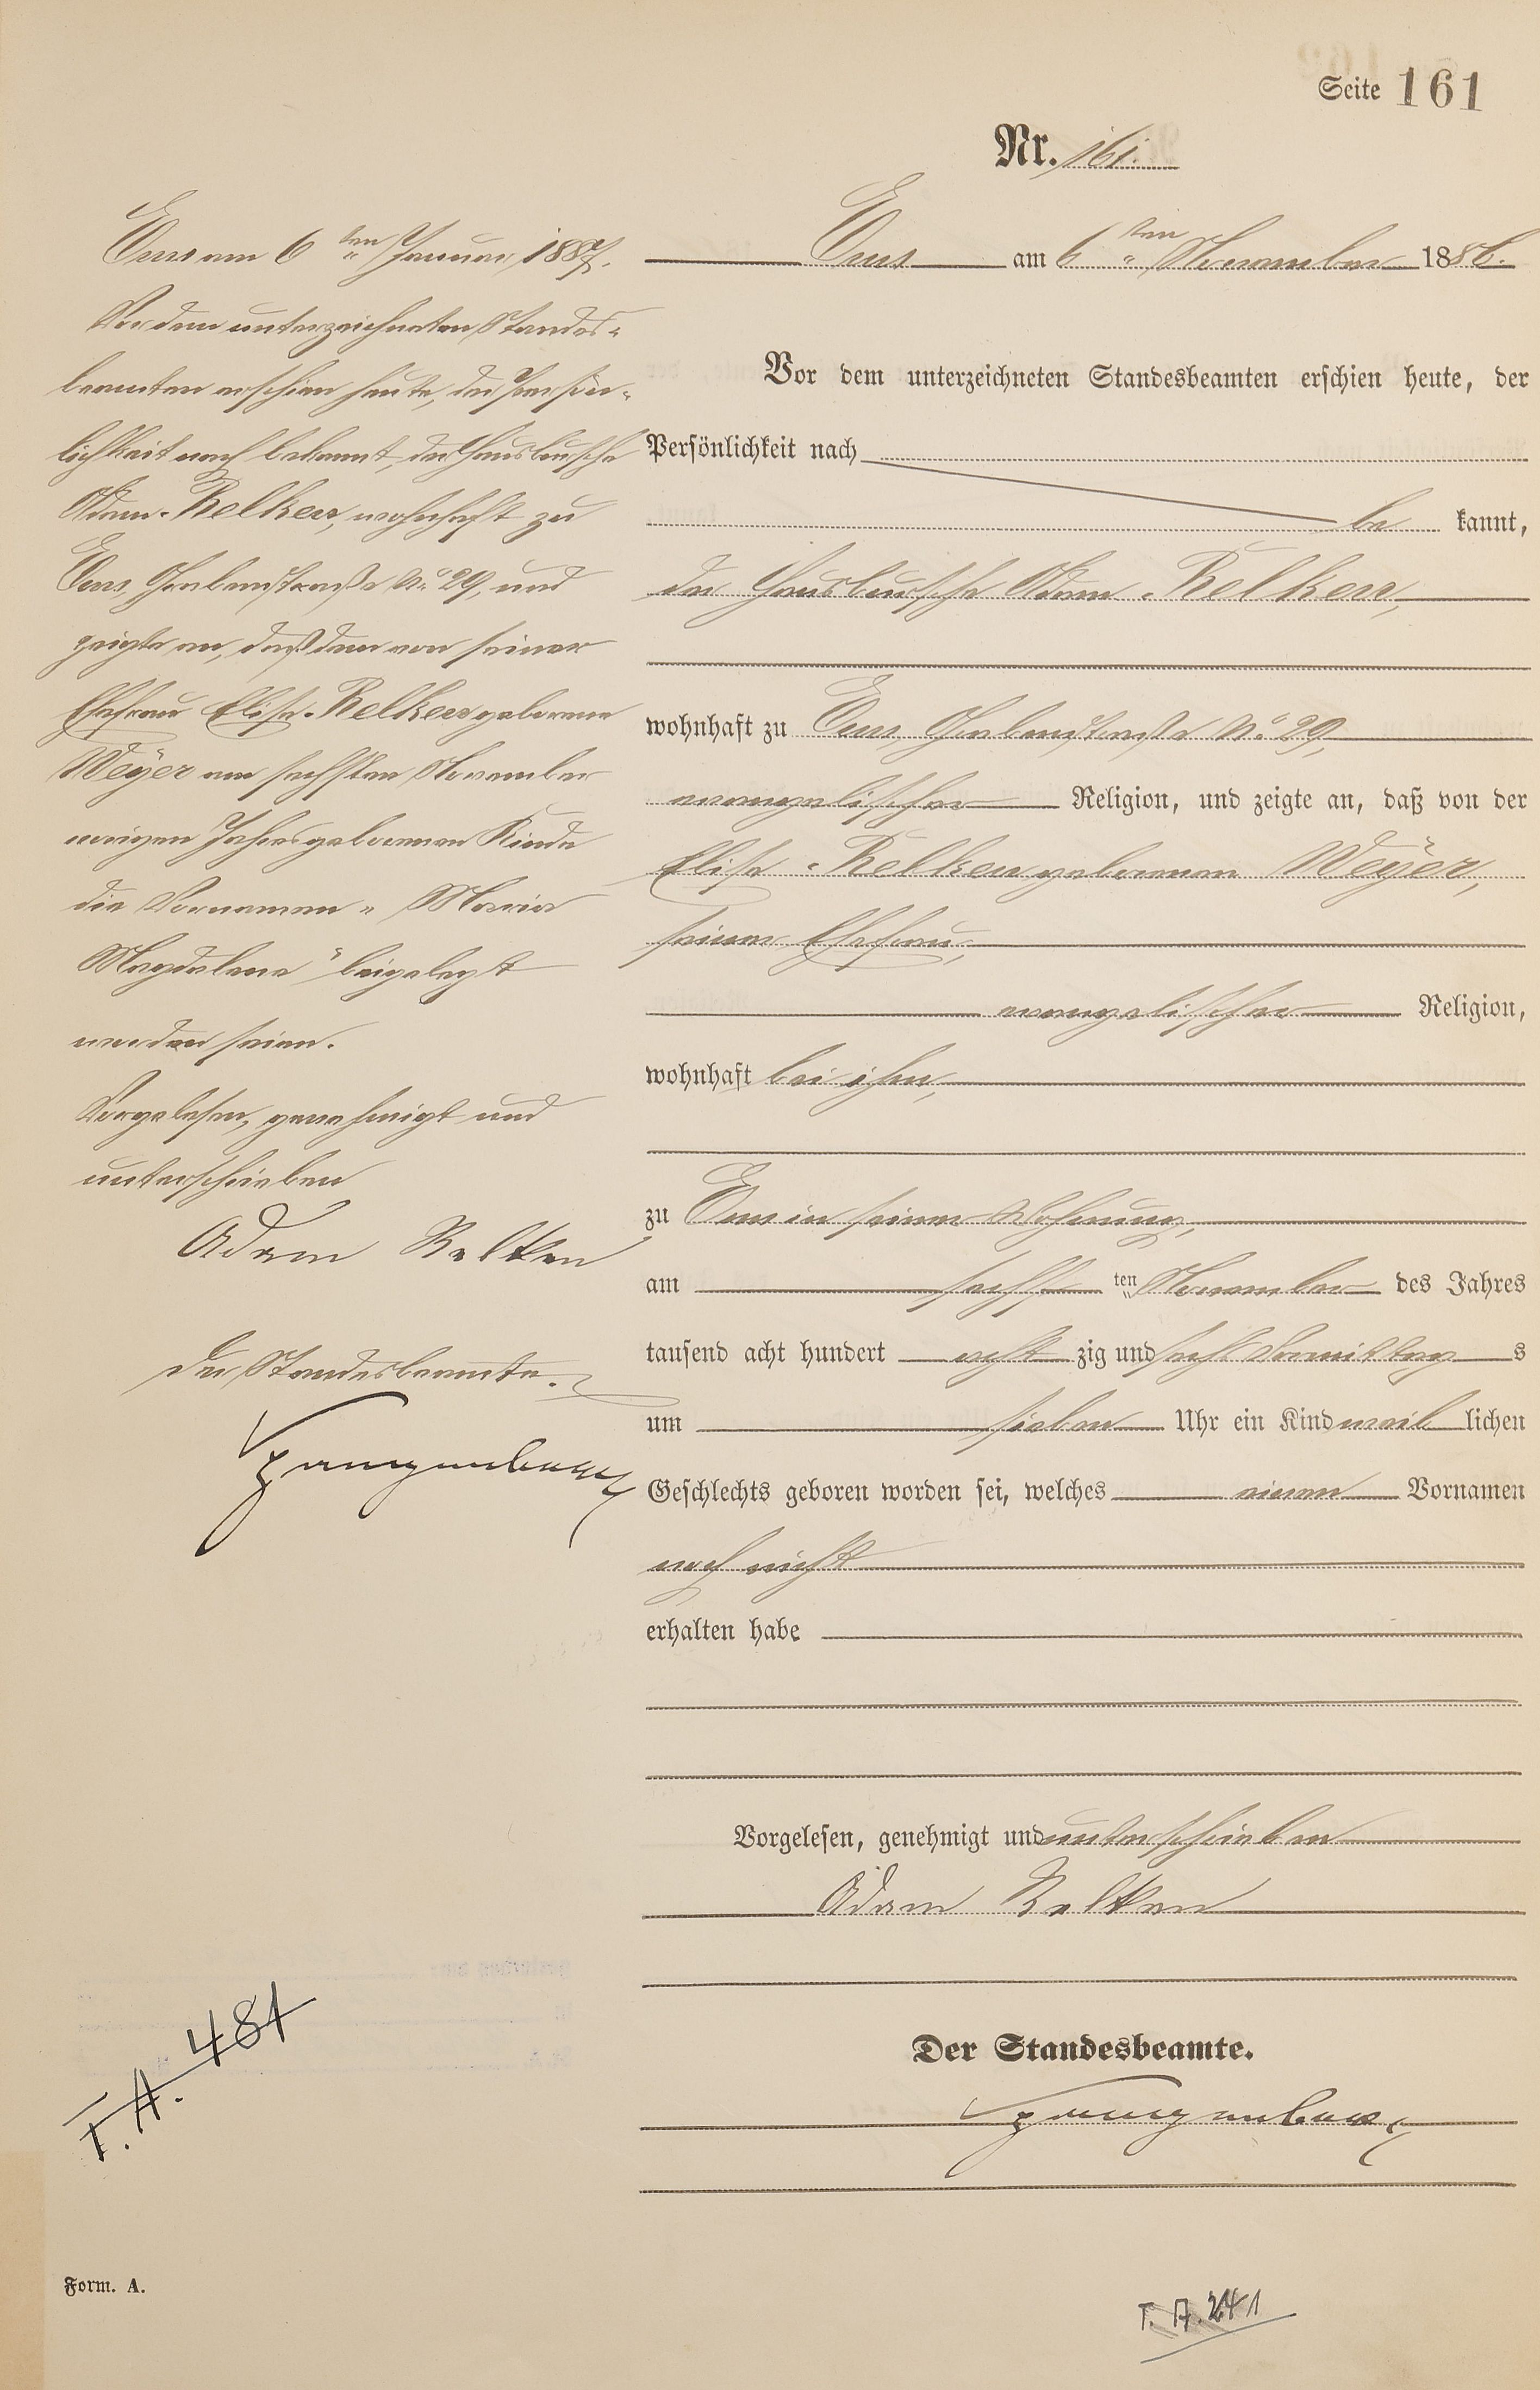 Seite 161
Nr. 161.
Ems am 6ten November 1886.
Vor dem unterzeichneten Standesbeamten erschien heute, der
Persönlichkeit nach
be kannt,
der Hausbursche Adam Relken,
wohnhaft zu Ems, Grabenstraße No 29,
evangelischer Religion, und zeigte an, daß von der
Elise Relken geborenen Weÿer,
seiner Ehefrau,
evangelischer Religion,
wohnhaft bei ihm,
zu Ems in seiner Wohnung,
am sechsten November des Jahres
tausend acht hundert acht zig und sechs Vormittags
um sieben Uhr ein Kind weiblichen
Geschlechts geboren worden sei, welches einen Vornamen
noch nicht
erhalten habe
Vorgelesen, genehmigt und unterschrieben
Adam Relken
Der Standesbeamte.
Ems am 6ten Januar 1887.
Vor dem unterzeichneten Standes-
beamten erschien heute, der Persön-
lichkeit nach bekannt, der Hausbursche
Adam Relken, wohnhaft zu
Ems, Grabenstraße No 29, und
zeigte an, daß dem von seiner
Ehefrau Elise Relken geborene
Weÿer am sechsten November
vorigen Jahres geborenen Kinde
die Vornamen "Maria
Magdalena" beigelegt
worden seien.
Vorgelesen, genehmigt und
unterschrieben
Adam Relken
Der Standesbeamte.
T. A. 481
Form. A.
T. A. 241